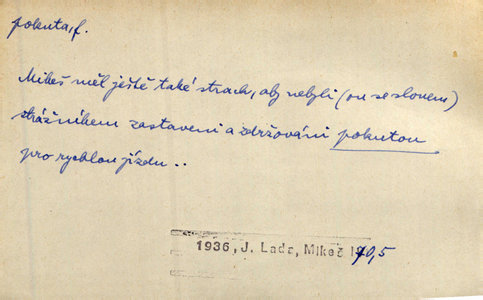 pokuta, f.
Mikeš měl ještě také strach, aby nebyli (on se slonem)
strážníkem zastaveni a zdržováni pokutou
pro rychlou jízdu..
1936, J. Lada, Mikeš I 70,5